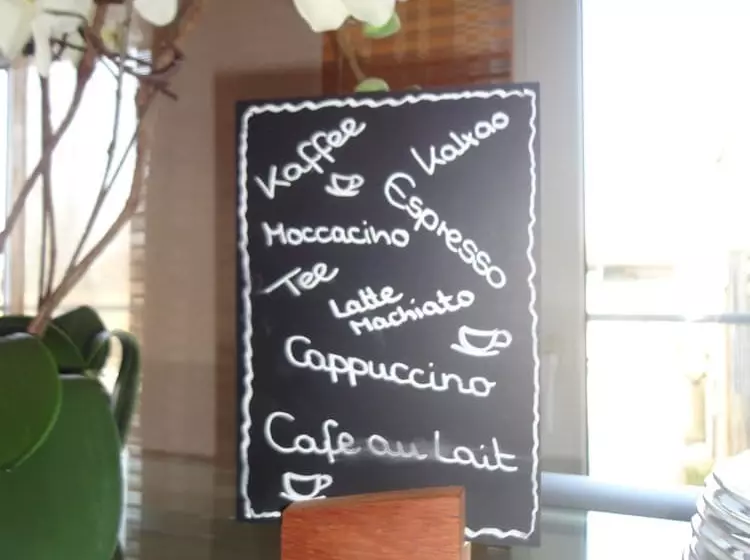 Kaffee
Kakao
Espresso
Moccacino
Tee
Latte
Machiato
Cappuccino
Cafe au Lait